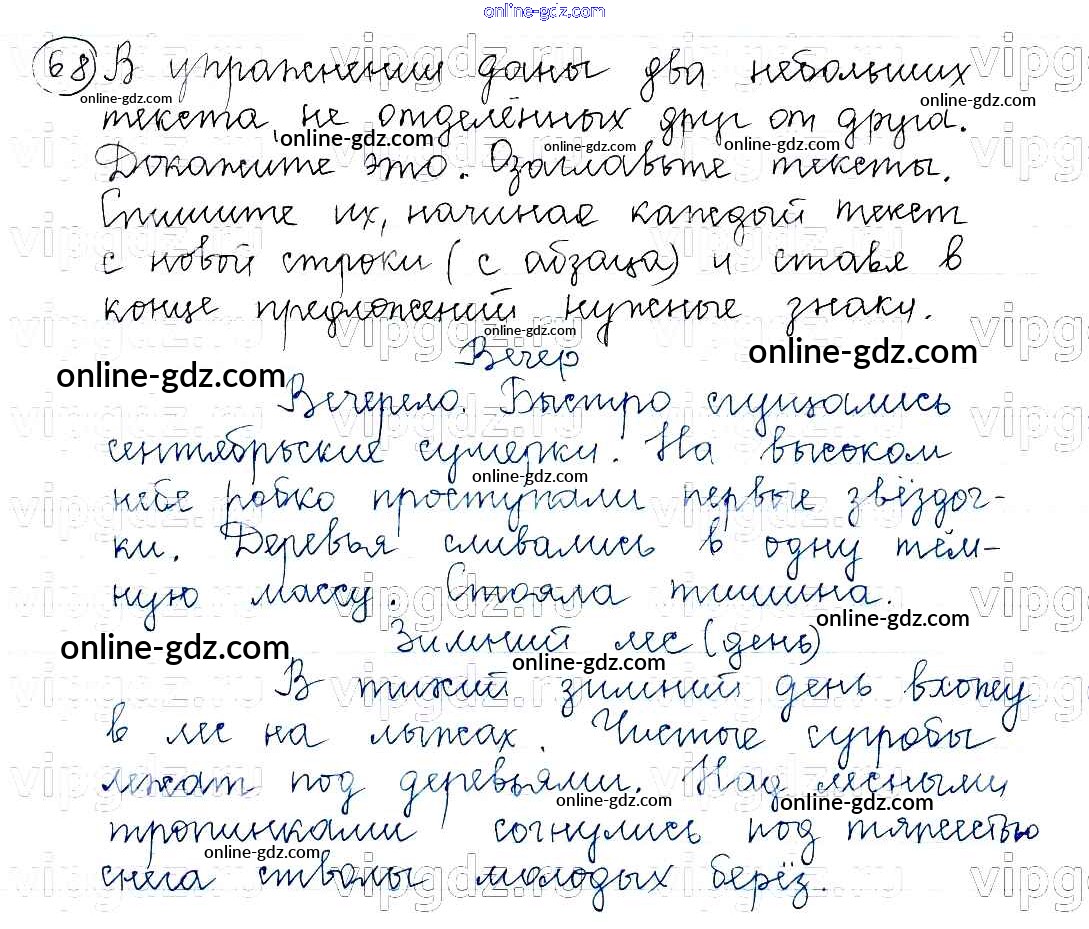 online-gdz.com
68 В упражнении даны два небольших
online-gdz.com online-gdz.com
текста, не отделённых друг от друга.
online-gdz.com online-gdz.com online-gdz.com
Докажите это. Озаглавьте тексты.
Спишите их, начиная каждый текст
с новой строки (с абзаца) и ставя в
конце предложений нужные знаки.
online-gdz.com
Вечер
online-gdz.com online-gdz.com
Вечерело. Быстро сгущались
сентябрьские сумерки. На высоком
online-gdz.com
небе робко проступали первые звёздоч-
ки. Деревья сливались в одну тём-
ную массу. Стояла тишина.
online-gdz.com
Зимний лес (день)
online-gdz.com online-gdz.com
В тихий зимний день вхожу
в лес на лыжах. Чистые сугробы
лежат под деревьями. Над лесными
online-gdz.com online-gdz.com
тропинками согнулись под тяжестью
online-gdz.com
снега стволы молодых берёз.